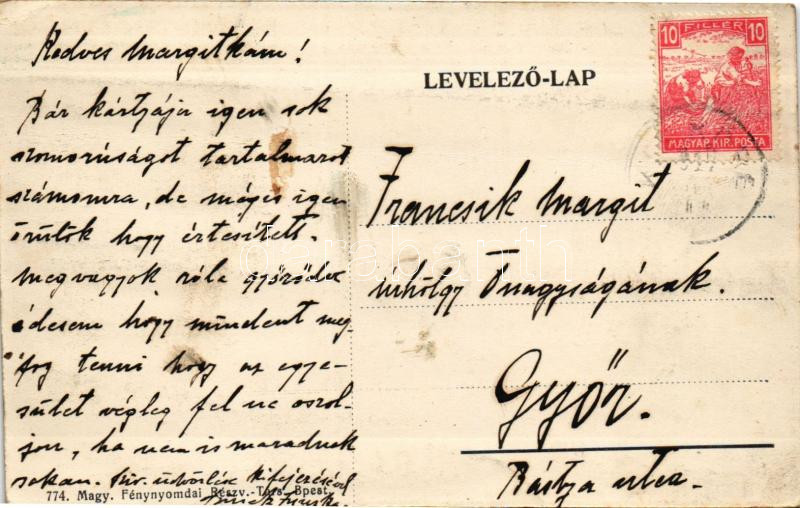 Kedves Margitkám!
Bár kártyája igen sok
szomorúságot tartalmazott
számomra, de mégis igen
örülök hogy értesített.
megvagyok róla győződve
édesem hogy mindent meg
fog tenni hogy az egye-
sület végleg fel ne oszol-
jon, ha nem is maradnak
sokan. Szív. üdvözlése kifejezésével
774. Magy. Fénynyomdai Részv.-Társ. Bpest.
LEVELEZŐ-LAP
10 FILLÉR 10
MAGYAR KIR. POSTA
Francsik Margit
úrhölgy Őnagyságának.
Győr.
Bástya utca.
darabanth